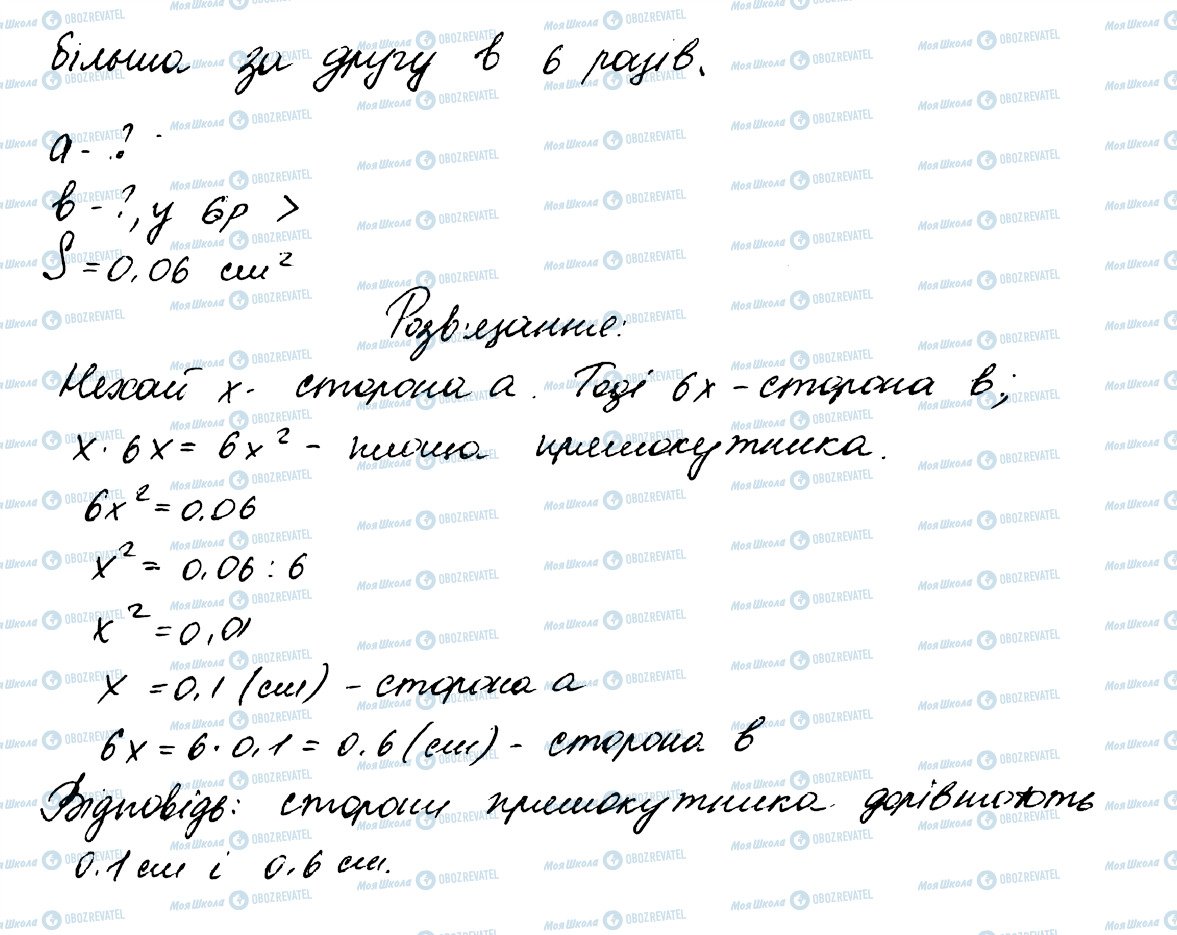 більша за другу в 6 разів.
a - ?
в - ?, у 6р >
S = 0,06 см²
Розв'язання:
Нехай x - сторона a. Тоді 6x - сторона в;
x · 6x = 6x² - площа прямокутника.
6x² = 0.06
x² = 0,06 : 6
x² = 0,01
x = 0,1 (см) - сторона a
6x = 6 · 0,1 = 0.6 (см) - сторона в
Відповідь: сторони прямокутника дорівнюють
0.1 см і 0.6 см.
МояШкола OBOZREVATEL